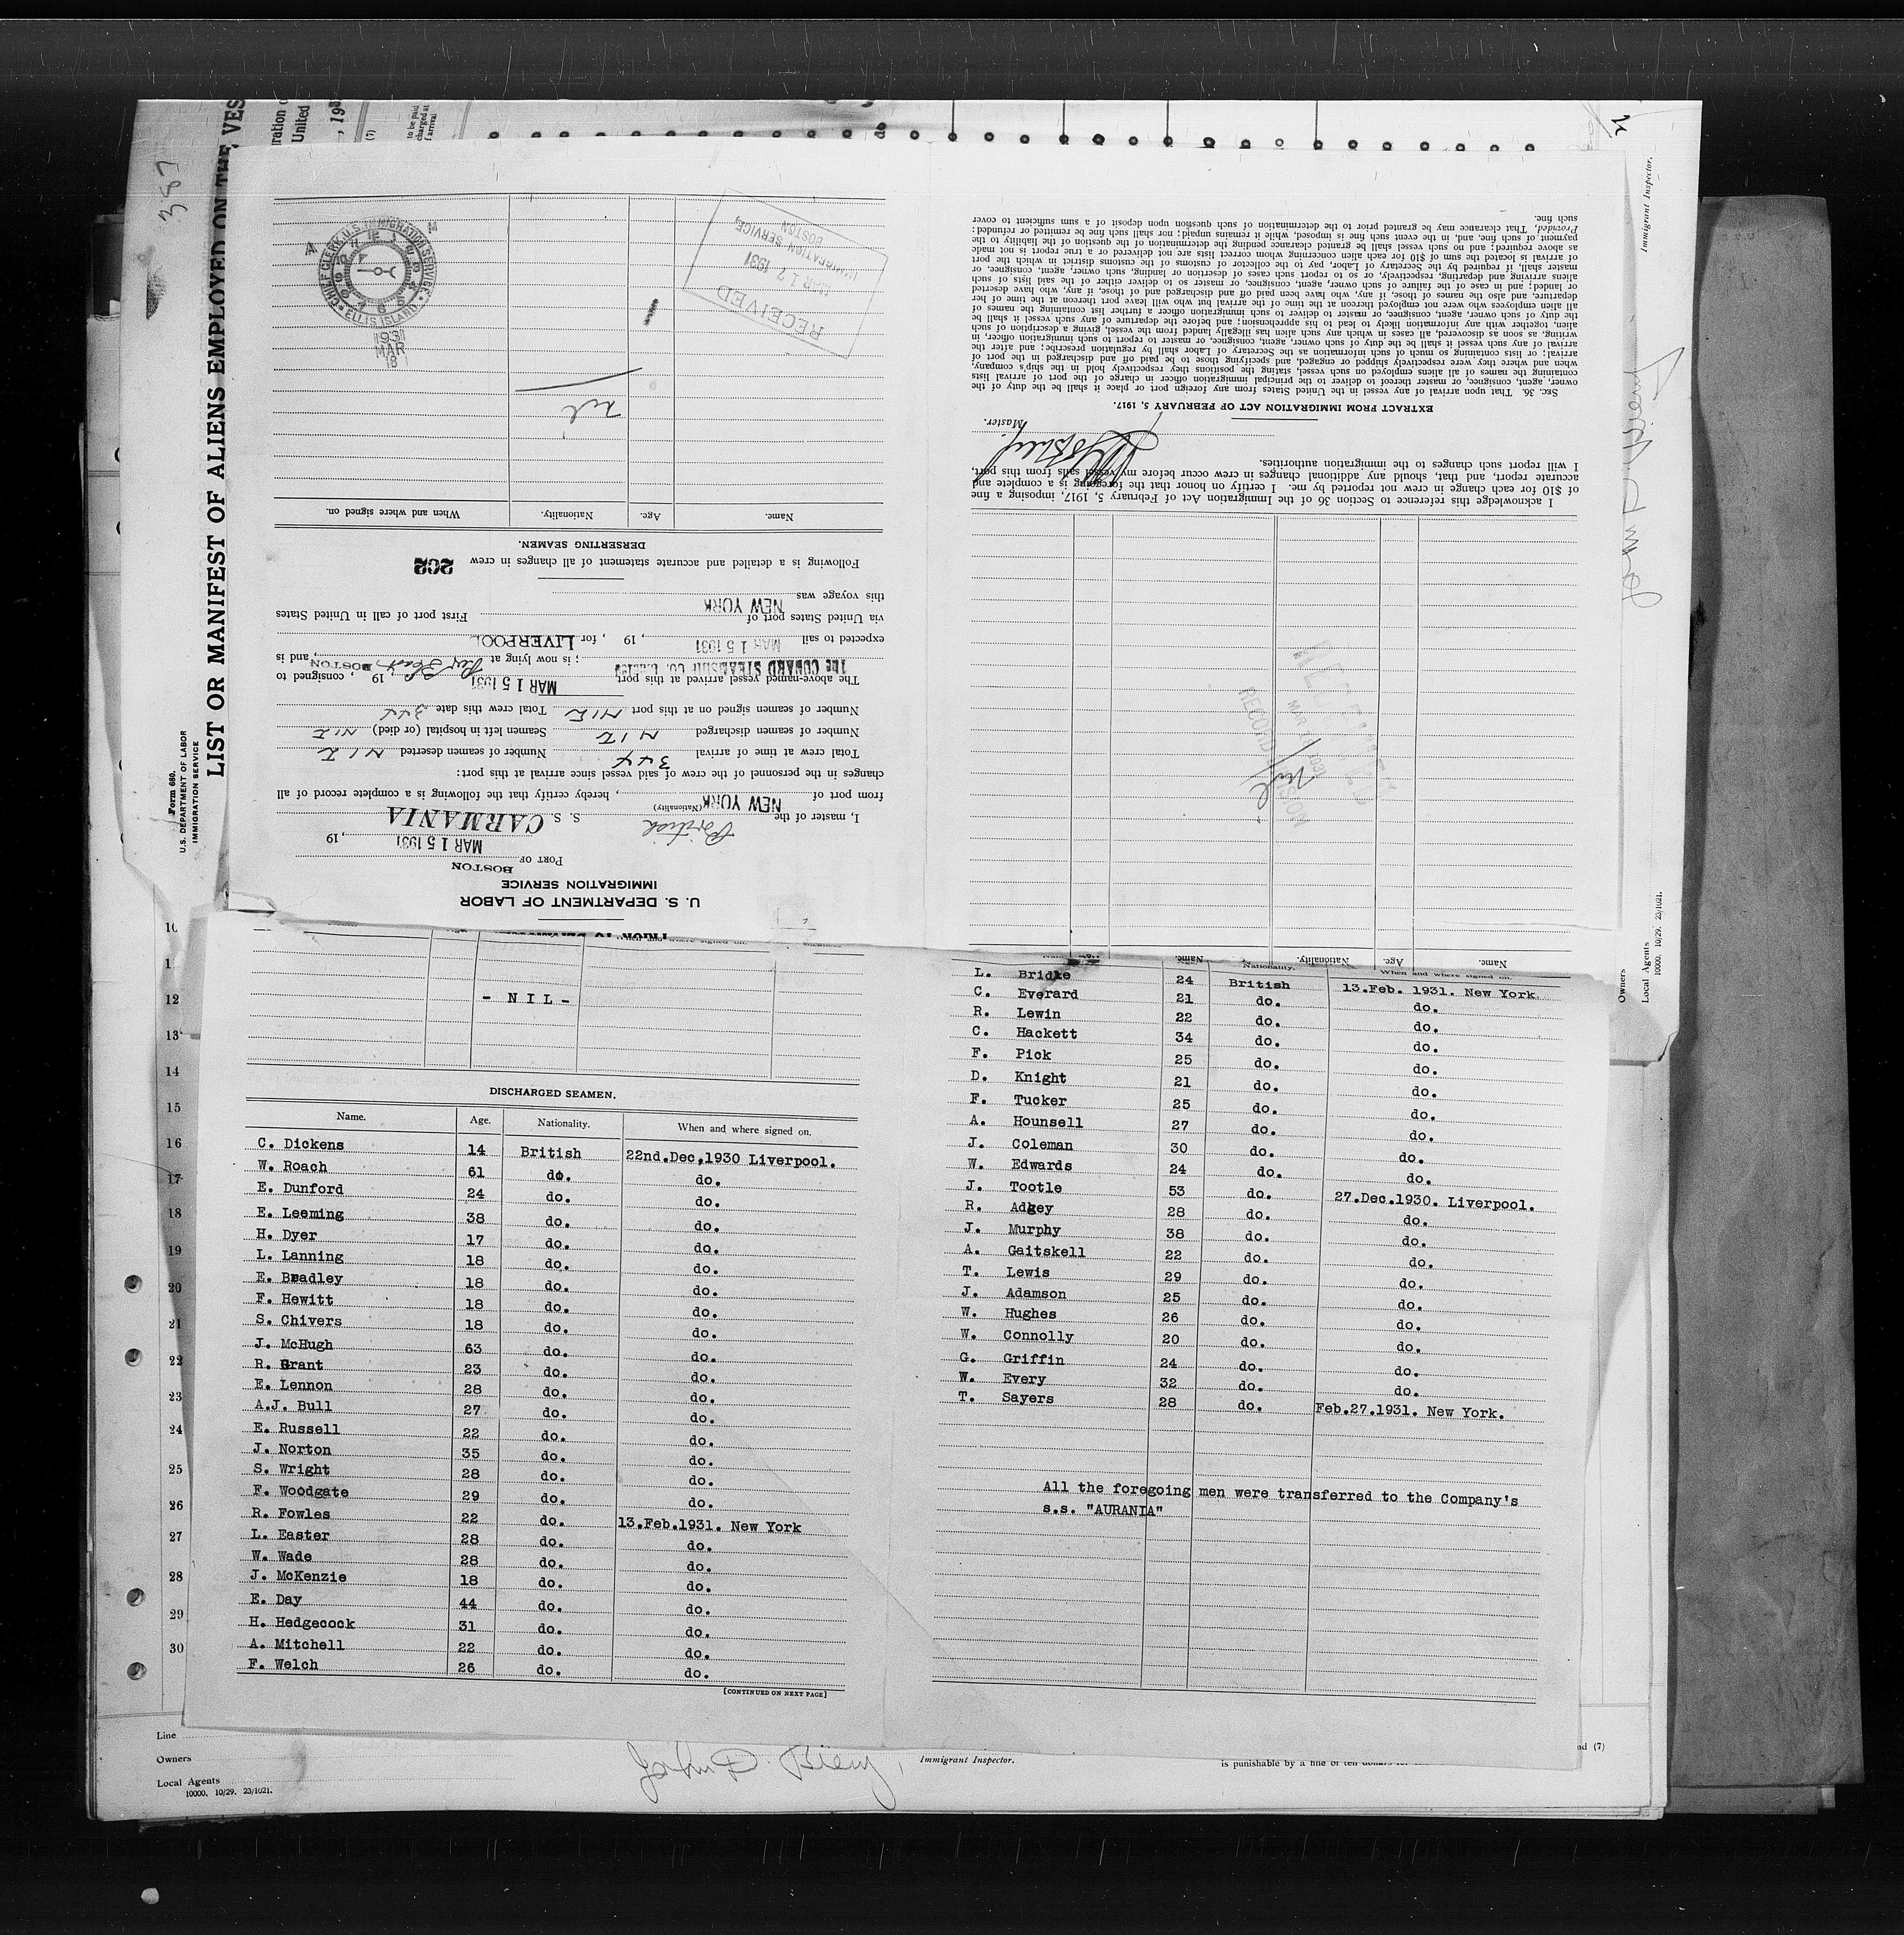 387
LIST OR MANIFEST OF ALIENS EMPLOYED ON THE VES
Form 680.
U.S. DEPARTMENT OF LABOR
IMMIGRATION SERVICE
U. S. DEPARTMENT OF LABOR
IMMIGRATION SERVICE
BOSTON
PORT OF
MAR 15 1931, 19
I, master of the British S. S. CARMANIA
(Nationality)
from port of NEW YORK, hereby certify that the following is a complete record of all
changes in the personnel of the crew of said vessel since arrival at this port:
Total crew at time of arrival 344 Number of seamen deserted NIL
Number of seamen discharged NIL Seamen left in hospital (or died) NIL
Number of seamen signed on at this port NIL Total crew this date 344
The above-named vessel arrived at this port MAR 15 1931 19 , consigned to
THE CUNARD STEAMSHIP CO. LIMITED ; is now lying at BOSTON , and is
expected to sail MAR 15 1931 , 19 , for LIVERPOOL
via United States port of NEW YORK First port of call in United States
this voyage was
Following is a detailed and accurate statement of all changes in crew 202
DERSERTING SEAMEN.
Name. Age. Nationality. When and where signed on.
Nil
RECEIVED
MAR 17 1931
IMMIGRATION SERVICE,
BOSTON
CHIEF CLERK, U.S. IMMIGRATION SERVICE
ELLIS ISLAND
1931
MAR
18
Name. Age. Nationality. Name.
Nil
RECORD DIVISION
I acknowledge this reference to Section 36 of the Immigration Act of February 5, 1917, imposing a fine
of $10 for each change in crew not reported by me. I certify on honor that the foregoing is a complete and
accurate report, and that, should any additional changes in crew occur before my vessel sails from this port,
I will report such changes to the immigration authorities.
Master.
EXTRACT FROM IMMIGRATION ACT OF FEBRUARY 5, 1917.
SEC. 36. That upon arrival of any vessel in the United States from any foreign port or place it shall be the duty of the
owner, agent, consignee, or master thereof to deliver to the principal immigration officer in charge of the port of arrival lists
containing the names of all aliens employed on such vessel, stating the positions they respectively hold in the ship's company,
when and where they were respectively shipped or engaged, and specifying those to be paid off and discharged in the port of
arrival; or lists containing so much of such information as the Secretary of Labor shall by regulation prescribe; and after the
arrival of any such vessel it shall be the duty of such owner, agent, consignee, or master to report to such immigration officer, in
writing, as soon as discovered, all cases in which any such alien has illegally landed from the vessel, giving a description of such
alien, together with any information likely to lead to his apprehension; and before the departure of any such vessel it shall be
the duty of such owner, agent, consignee, or master to deliver to such immigration officer a further list containing the names of
all alien employees who were not employed thereon at the time of the arrival but who will leave port thereon at the time of her
departure, and also the names of those, if any, who have been paid off and discharged and of those, if any, who have deserted
or landed; and in case of the failure of such owner, agent, consignee, or master so to deliver either of the said lists of such
aliens arriving and departing, respectively, or so to report such cases of desertion or landing, such owner, agent, consignee, or
master shall, if required by the Secretary of Labor, pay to the collector of customs of the customs district in which the port
of arrival is located the sum of $10 for each alien concerning whom correct lists are not delivered or a true report is not made
as above required; and no such vessel shall be granted clearance pending the determination of the question of the liability to the
payment of such fine, and, in the event such fine is imposed, while it remains unpaid; nor shall such fine be remitted or refunded:
Provided, That clearance may be granted prior to the determination of such question upon deposit of a sum sufficient to cover
such fine.
Immigrant Inspector.
Owners
Local Agents
10000. 10/29. 23/1021.
- N I L -
DISCHARGED SEAMEN.
Name. Age. Nationality. When and where signed on.
C. Dickens 14 British 22nd.Dec,1930 Liverpool.
W. Roach 61 do. do.
E. Dunford 24 do. do.
E. Leeming 38 do. do.
H. Dyer 17 do. do.
L. Lanning 18 do. do.
E. Bradley 18 do. do.
F. Hewitt 18 do. do.
S. Chivers 18 do. do.
J. McHugh 63 do. do.
R. Grant 23 do. do.
E. Lennon 28 do. do.
A.J. Bull 27 do. do.
E. Russell 22 do. do.
J. Norton 35 do. do.
S. Wright 28 do. do.
F. Woodgate 29 do. do.
R. Fowles 22 do. 13.Feb.1931. New York
L. Easter 28 do. do.
W. Wade 28 do. do.
J. McKenzie 18 do. do.
E. Day 44 do. do.
H. Hedgecock 31 do. do.
A. Mitchell 22 do. do.
F. Welch 26 do. do.
[CONTINUED ON NEXT PAGE]
Nationality. When and where signed on.
L. Bridle 24 British 13.Feb. 1931. New York
C. Everard 21 do. do.
R. Lewin 22 do. do.
C. Hackett 34 do. do.
F. Pick 25 do. do.
D. Knight 21 do. do.
F. Tucker 25 do. do.
A. Hounsell 27 do. do.
J. Coleman 30 do. do.
W. Edwards 24 do. do.
J. Tootle 53 do. 27.Dec.1930. Liverpool.
R. Adgey 28 do. do.
J. Murphy 38 do. do.
A. Gaitskell 22 do. do.
T. Lewis 29 do. do.
J. Adamson 25 do. do.
W. Hughes 26 do. do.
W. Connolly 20 do. do.
G. Griffin 24 do. do.
W. Every 32 do. do.
T. Sayers 28 do. Feb.27.1931. New York.
All the foregoing men were transferred to the Company's
s.s. "AURANIA"
12
13
14
15
16
17
18
19
20
21
22
23
24
25
26
27
28
29
30
Line
Owners
Local Agents
10000. 10/29. 23/1021.
John D. Immigrant Inspector.
is punishable by a fine of ten dollars
nd (7)